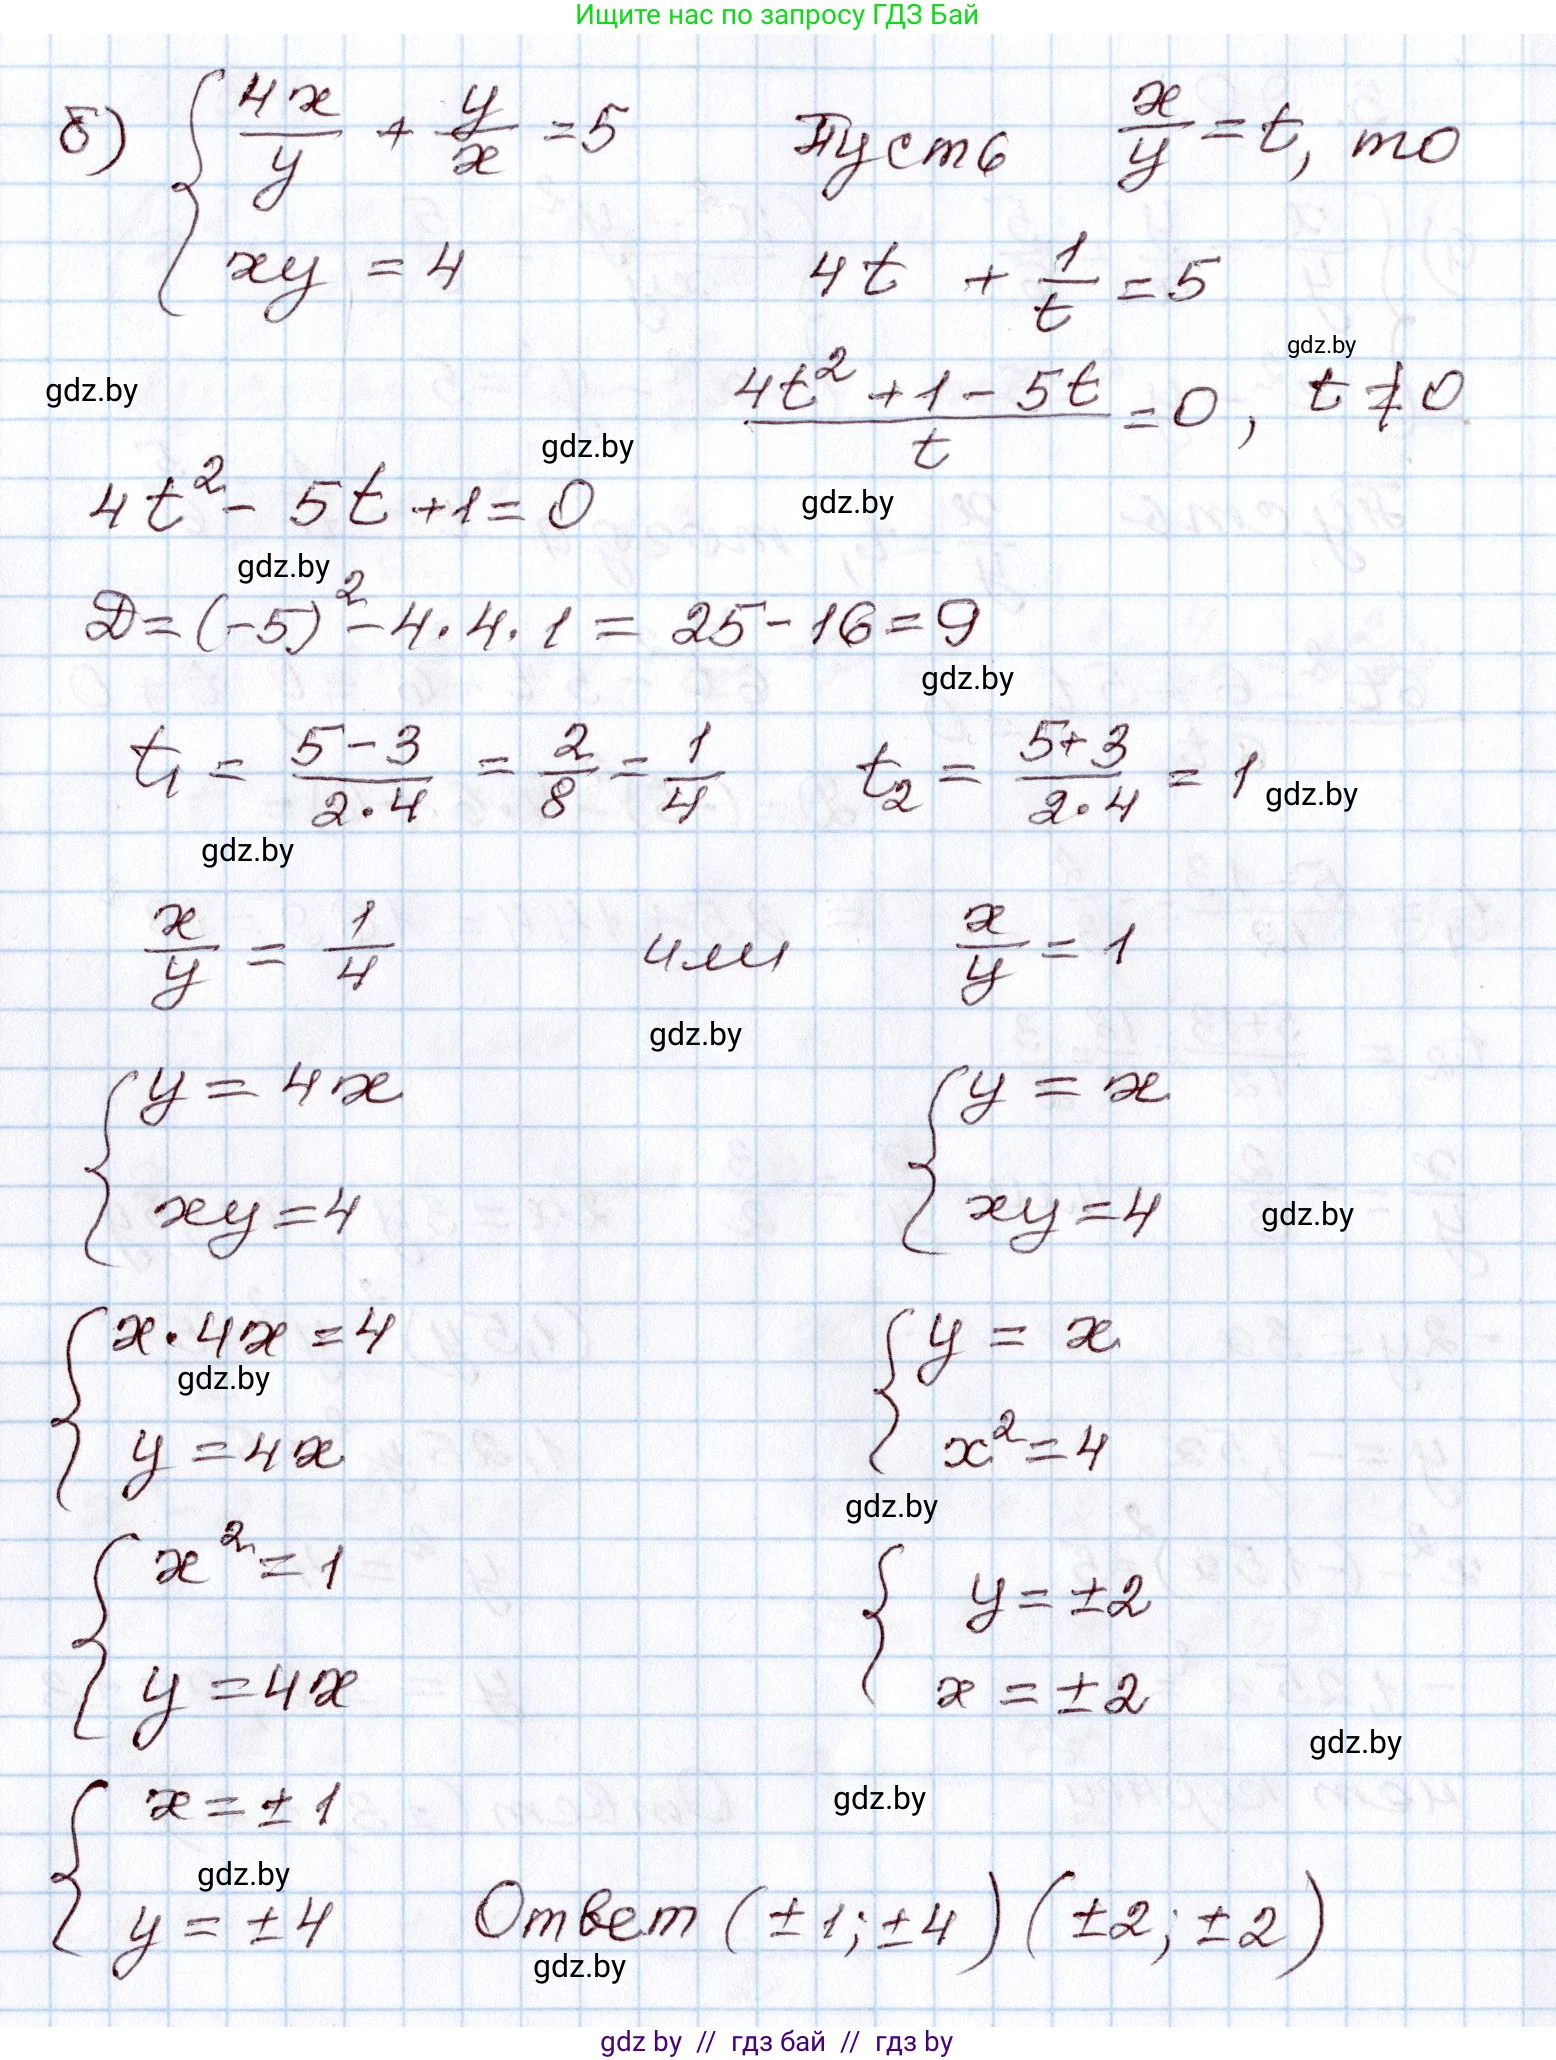 Ищите нас по запросу ГДЗ Бай
б) { 4x/y + y/x = 5   Пусть x/y = t, то
xy = 4   4t + 1/t = 5
gdz.by
(4t² + 1 - 5t)/t = 0, t ≠ 0
gdz.by
gdz.by
4t² - 5t + 1 = 0
gdz.by
gdz.by
Д = (-5)² - 4·4·1 = 25 - 16 = 9
gdz.by
t₁ = (5 - 3)/(2·4) = 2/8 = 1/4   t₂ = (5 + 3)/(2·4) = 1
gdz.by
gdz.by
x/y = 1/4   или   x/y = 1
gdz.by
{ y = 4x   { y = x
xy = 4   xy = 4
gdz.by
{ x·4x = 4   { y = x
gdz.by
y = 4x   x² = 4
gdz.by
{ x² = 1   { y = ±2
y = 4x   x = ±2
gdz.by
gdz.by
{ x = ±1
gdz.by
y = ±4   Ответ (±1; ±4) (±2; ±2)
gdz.by
gdz by // гдз бай // гдз by